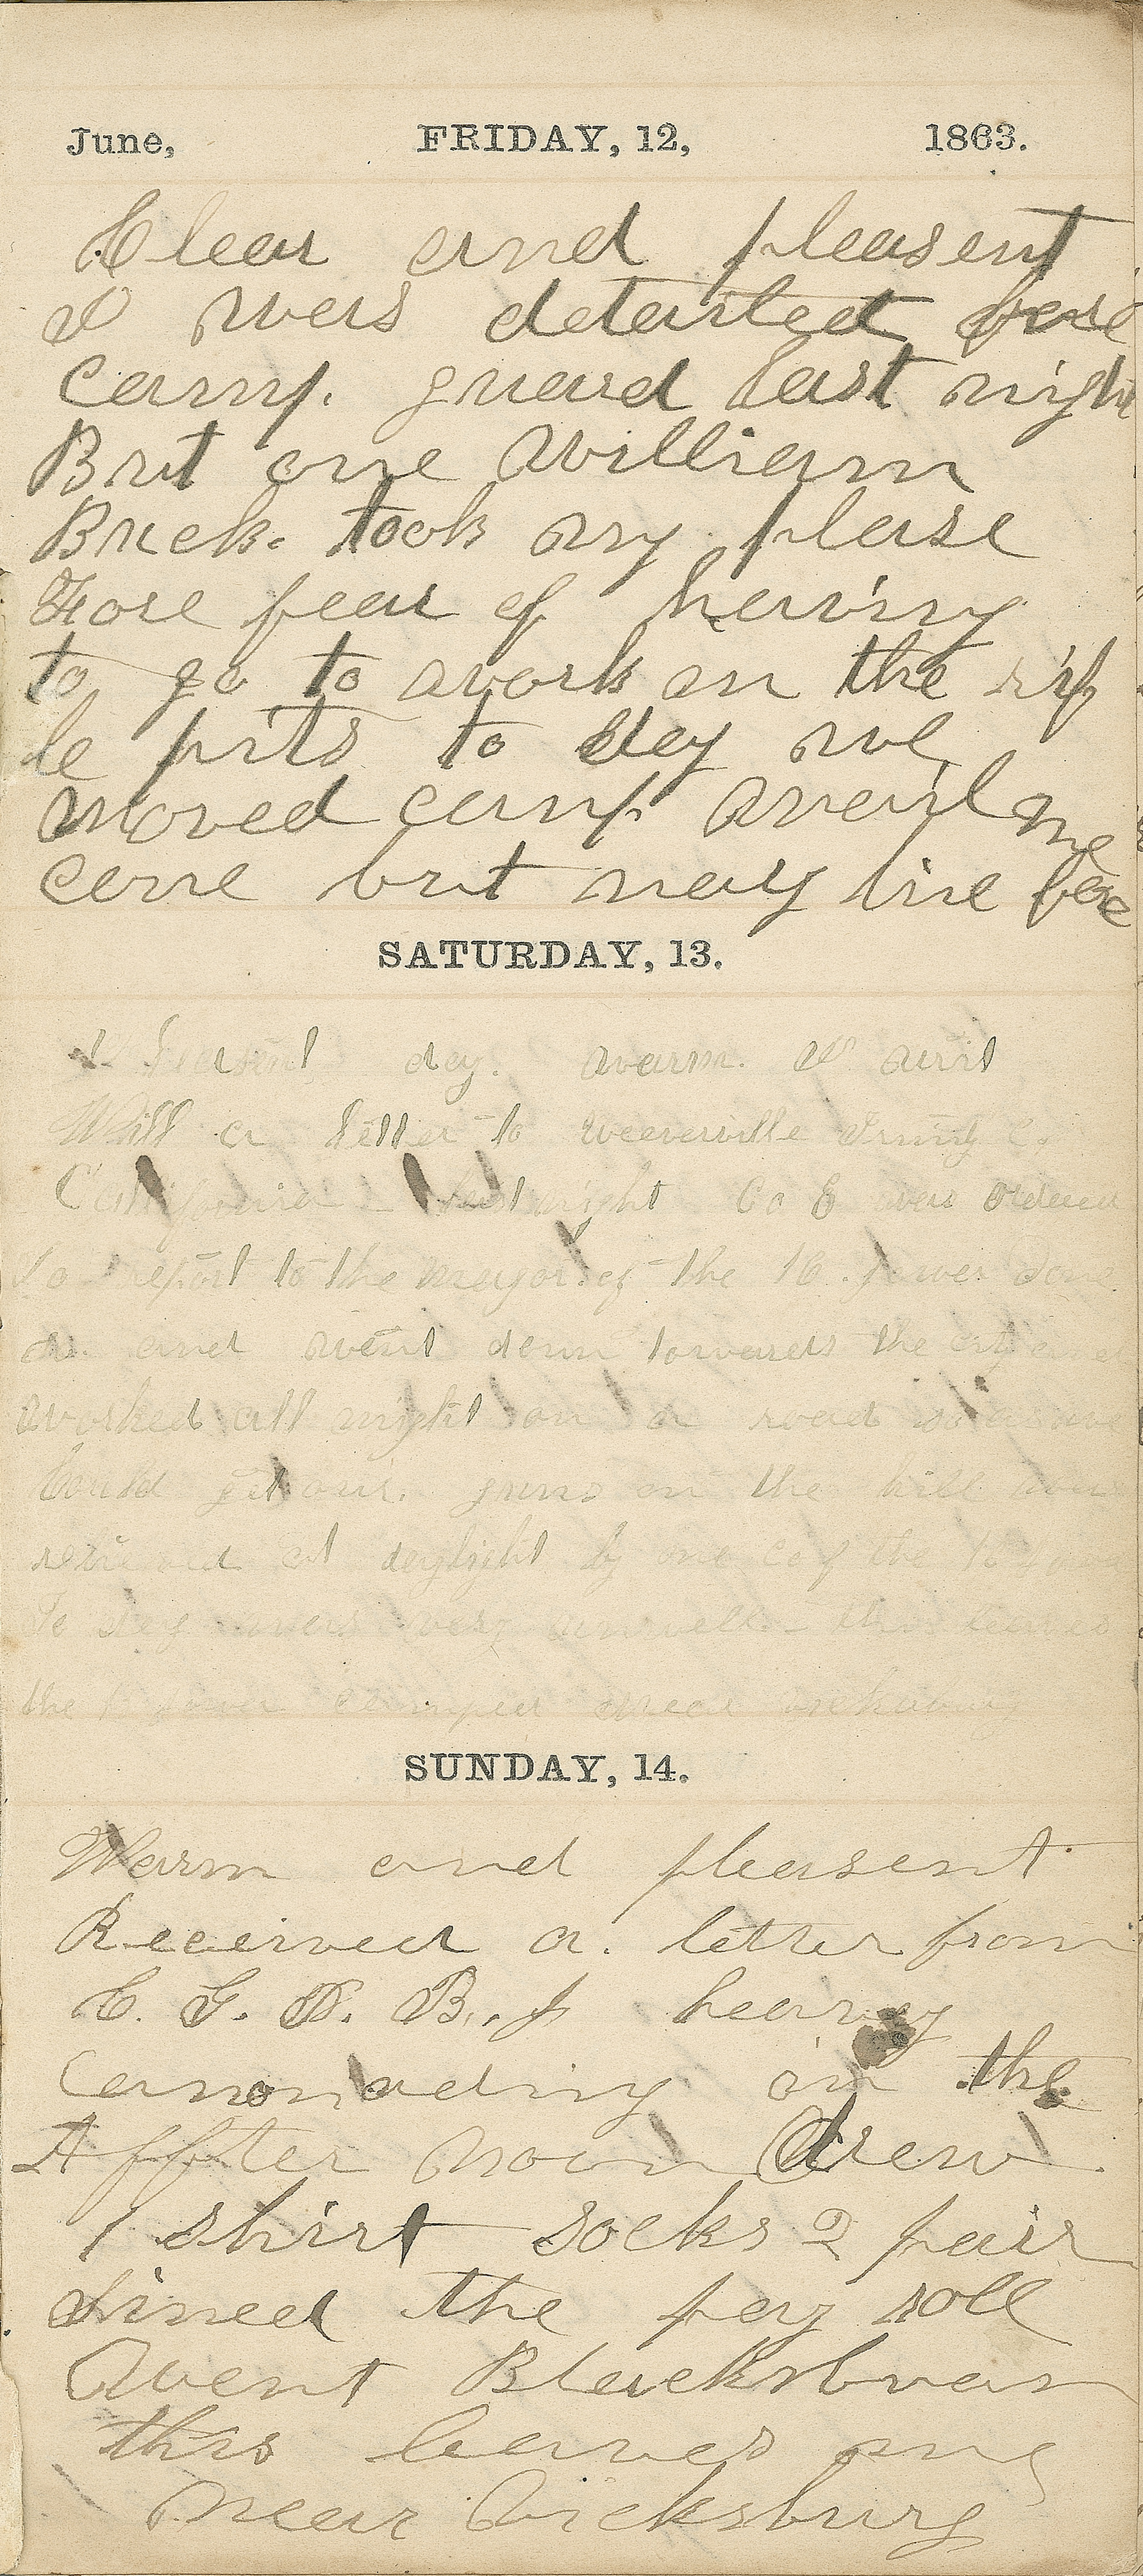 June, FRIDAY, 12, 1863.
Clear and pleasent
I was detailed fore
camp. guard last night
But one William
Buck. took my plase
Fore fear of having
to go to work on the rif
le pits to day we
moved camp
cane but may live here
SATURDAY, 13.
A pleasent day. warm. I writ
Will a letter to Weeverville Trinity Co
California - last night Co E was ordered
to report to the mayor of the 16. Iowa done
so and went down towards the city and
worked all night on a road so as we
Could get our. guns on the hill was
relieved at daylight by one co of the 16 Iowa
To day was very unwell - this leaves
the Iowa camped near vicksburg
SUNDAY, 14.
Warm and pleasent
Received a. letter from
C. G. D. B., J heavy
Canonading in the
Affter Noon Drew
1 shirt socks 2 pair
Sined the pay roll
Went Blackburan
this leaves me
Near Vicksburg